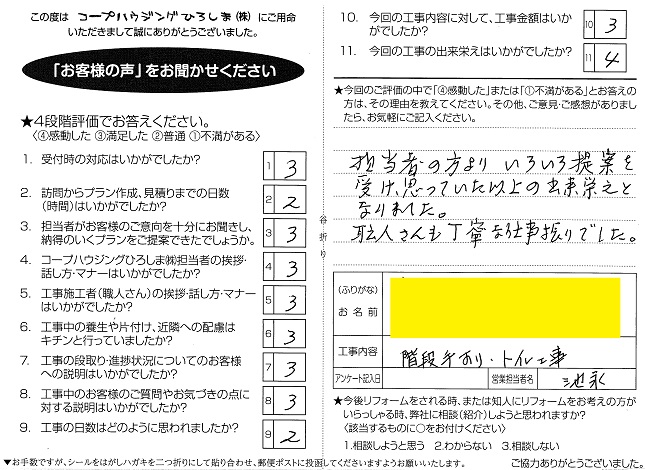 この度は コープハウジングひろしま(株) にご用命
いただきまして誠にありがとうございました。
「お客様の声」をお聞かせください
★4段階評価でお答えください。
〈④感動した ③満足した ②普通 ①不満がある〉
1. 受付時の対応はいかがでしたか? 1 3
2. 訪問からプラン作成、見積りまでの日数
(時間)はいかがでしたか? 2 2
3. 担当者がお客様のご意向を十分にお聞きし、
納得のいくプランをご提案できたでしょうか。 3 3
4. コープハウジングひろしま㈱担当者の挨拶・
話し方・マナーはいかがでしたか? 4 3
5. 工事施工者(職人さん)の挨拶・話し方・マナー
はいかがでしたか? 5 3
6. 工事中の養生や片付け、近隣への配慮は
キチンと行っていましたか? 6 3
7. 工事の段取り・進捗状況についてのお客様
への説明はいかがでしたか? 7 3
8. 工事中のお客様のご質問やお気づきの点に
対する説明はいかがでしたか? 8 3
9. 工事の日数はどのように思われましたか? 9 2
谷折り
10. 今回の工事内容に対して、工事金額はいか
がでしたか? 10 3
11. 今回の工事の出来栄えはいかがでしたか? 11 4
★今回のご評価の中で「④感動した」または「①不満がある」とお答えの
方は、その理由を教えてください。その他、ご意見・ご感想がありまし
たら、お気軽にご記入ください。
担当者の方より いろいろ提案を
受け、思っていた以上の出来栄えと
なりました。
職人さんも丁寧な仕事振りでした。
(ふりがな)
お名前
工事内容 階段手すり・トイレ工事
アンケート記入日 営業担当者名 池永
★今後リフォームをされる時、または知人にリフォームをお考えの方が
いらっしゃる時、弊社に相談(紹介)しようと思われますか?
〈該当するものに○をお付けください〉
1.相談しようと思う 2.わからない 3.相談しない
▼お手数ですが、シールをはがしハガキを二つ折りにして貼り合わせ、郵便ポストに投函してくださいますようお願いいたします。 ご協力ありがとうございました。